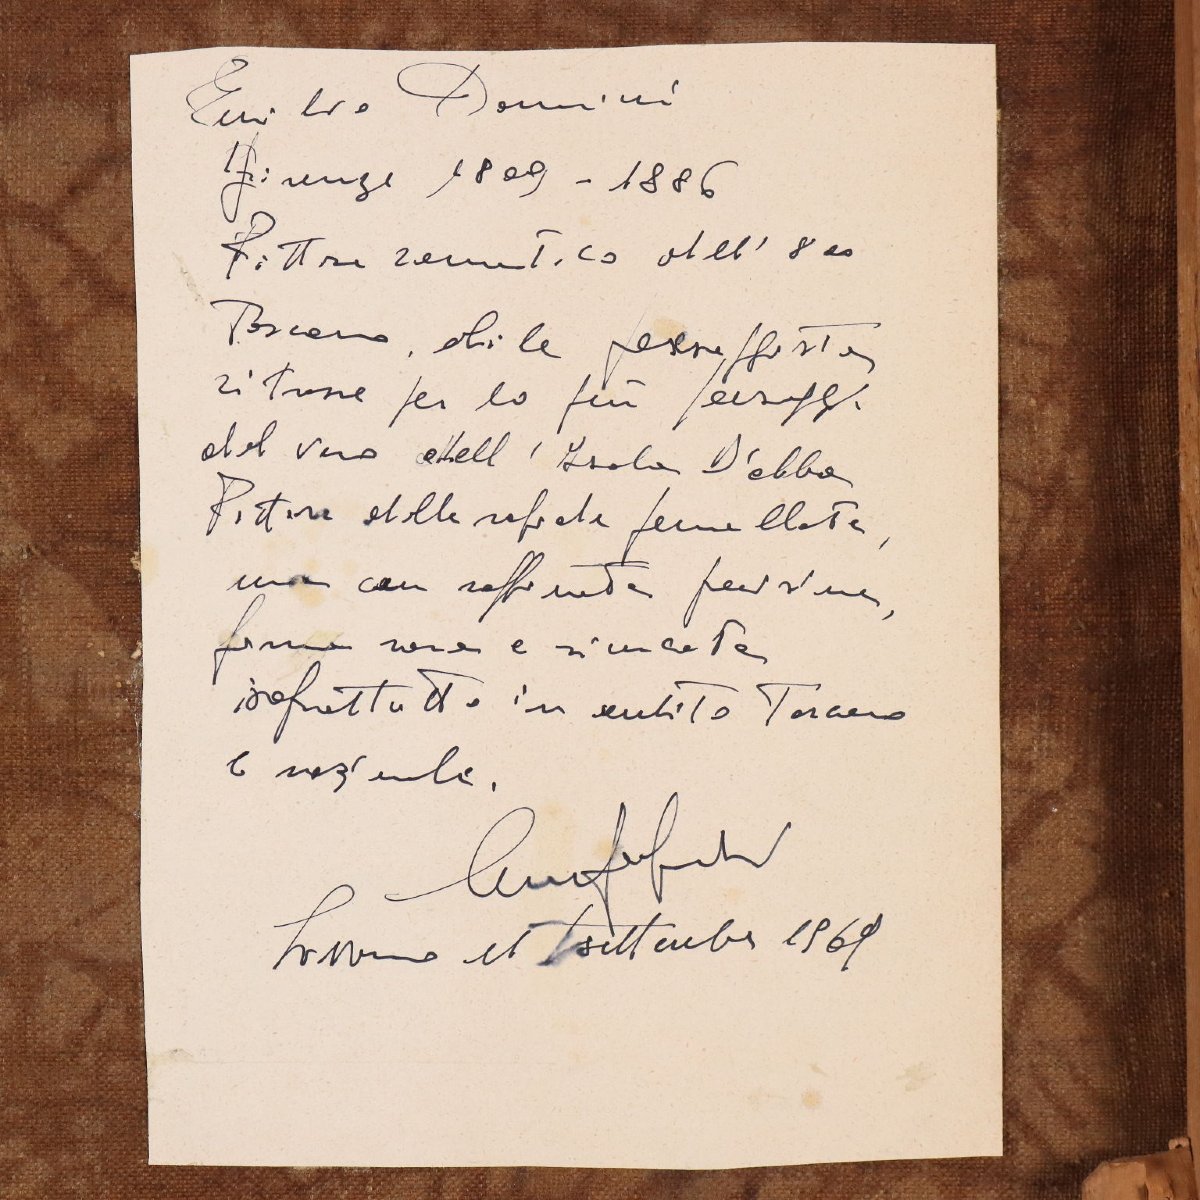 Emilio Donnini
Firenze 1809 - 1886
Pittore romantico dell' 800
Toscano, abile paesaggista
ritrae per lo più paesaggi
del vero dell' Isola D'elba
Pittura dalla rapida pennellata,
ma con raffinata
forma rara e ricercata
soprattutto in ambito Toscano
e nazionale.
Livorno il settembre 1969